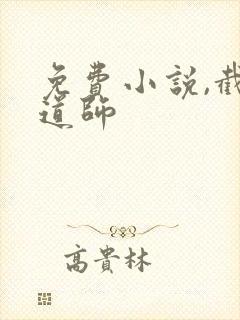 免費小說,截
道師
高貴林